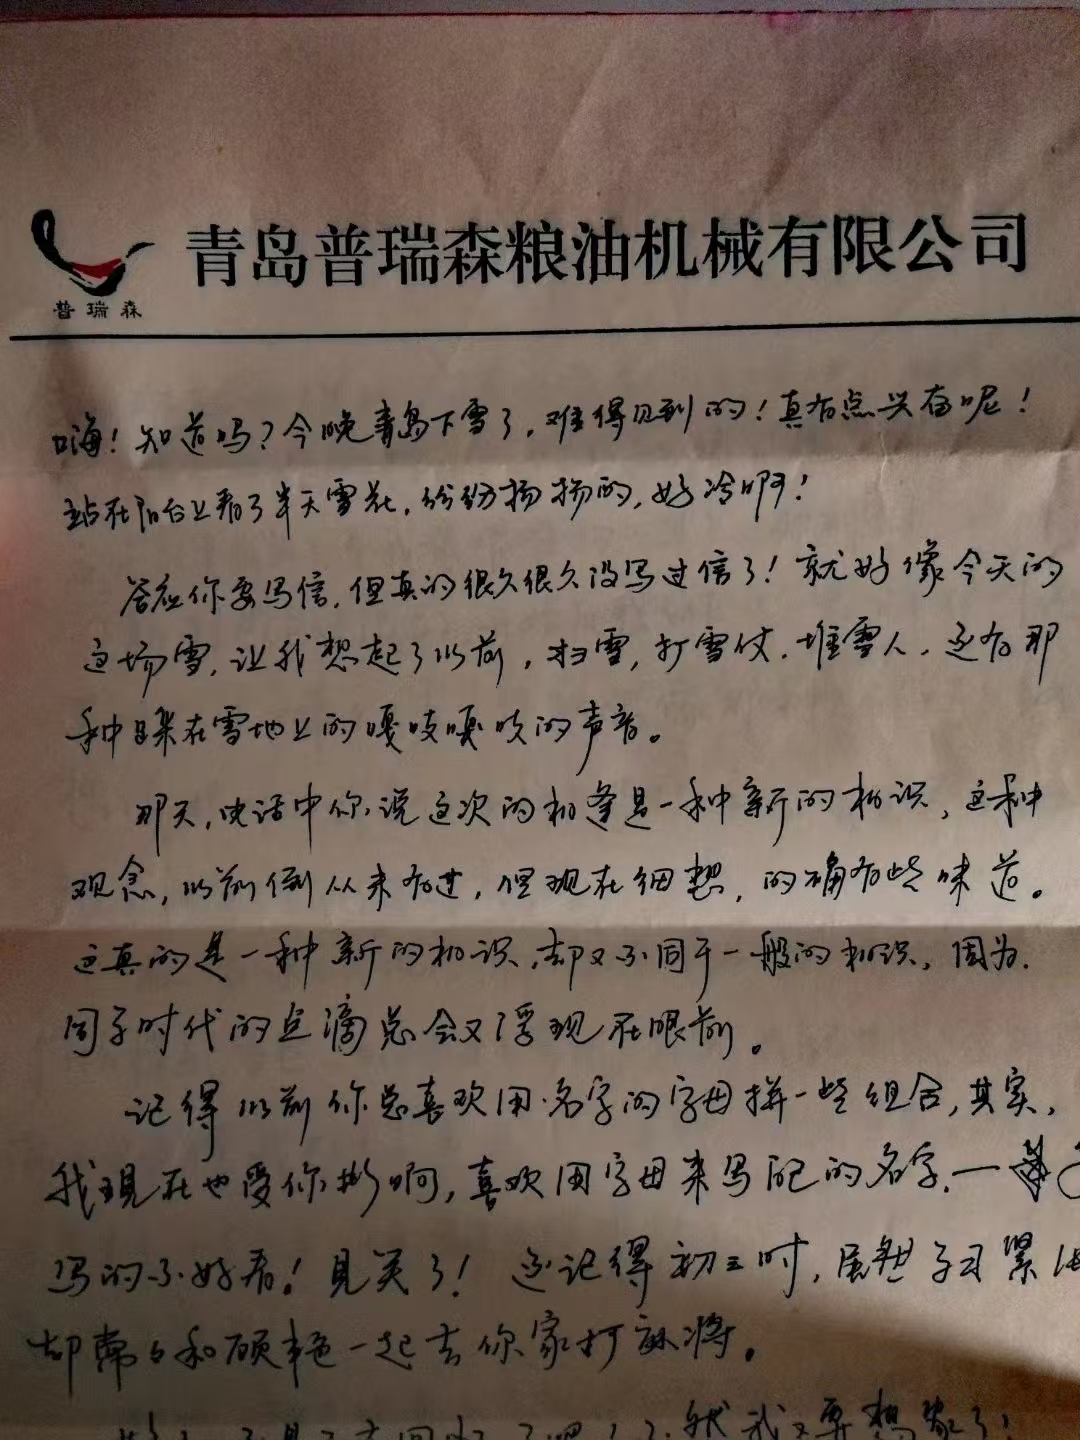 青岛普瑞森粮油机械有限公司
普瑞森
嗨！知道吗？今晚青岛下雪了，难得见到的！真有点兴奋呢！
站在阳台上看了半天雪花，纷纷扬扬的，好冷啊！
答应你要写信，但真的很久很久没写过信了！就好像今天的
这场雪，让我想起了以前，扫雪，打雪仗，堆雪人，还有那
种踩在雪地上的嘎吱嘎吱的声音。
那天，电话中你说这次的相逢是一种新的相识，这种
观念，以前倒从未有过，但现在细想，的确有些味道。
这真的是一种新的相识，却又不同于一般的相识，因为，
同学时代的点滴总会又浮现在眼前。
记得以前你总喜欢用名字的字母拼一些组合，其实，
我现在也受你影响，喜欢用字母来写自己的名字，一
写的不好看！见笑了！还记得初三时，虽然学习紧
却常常和硕艳一起去你家打麻将。
我又要想家了！